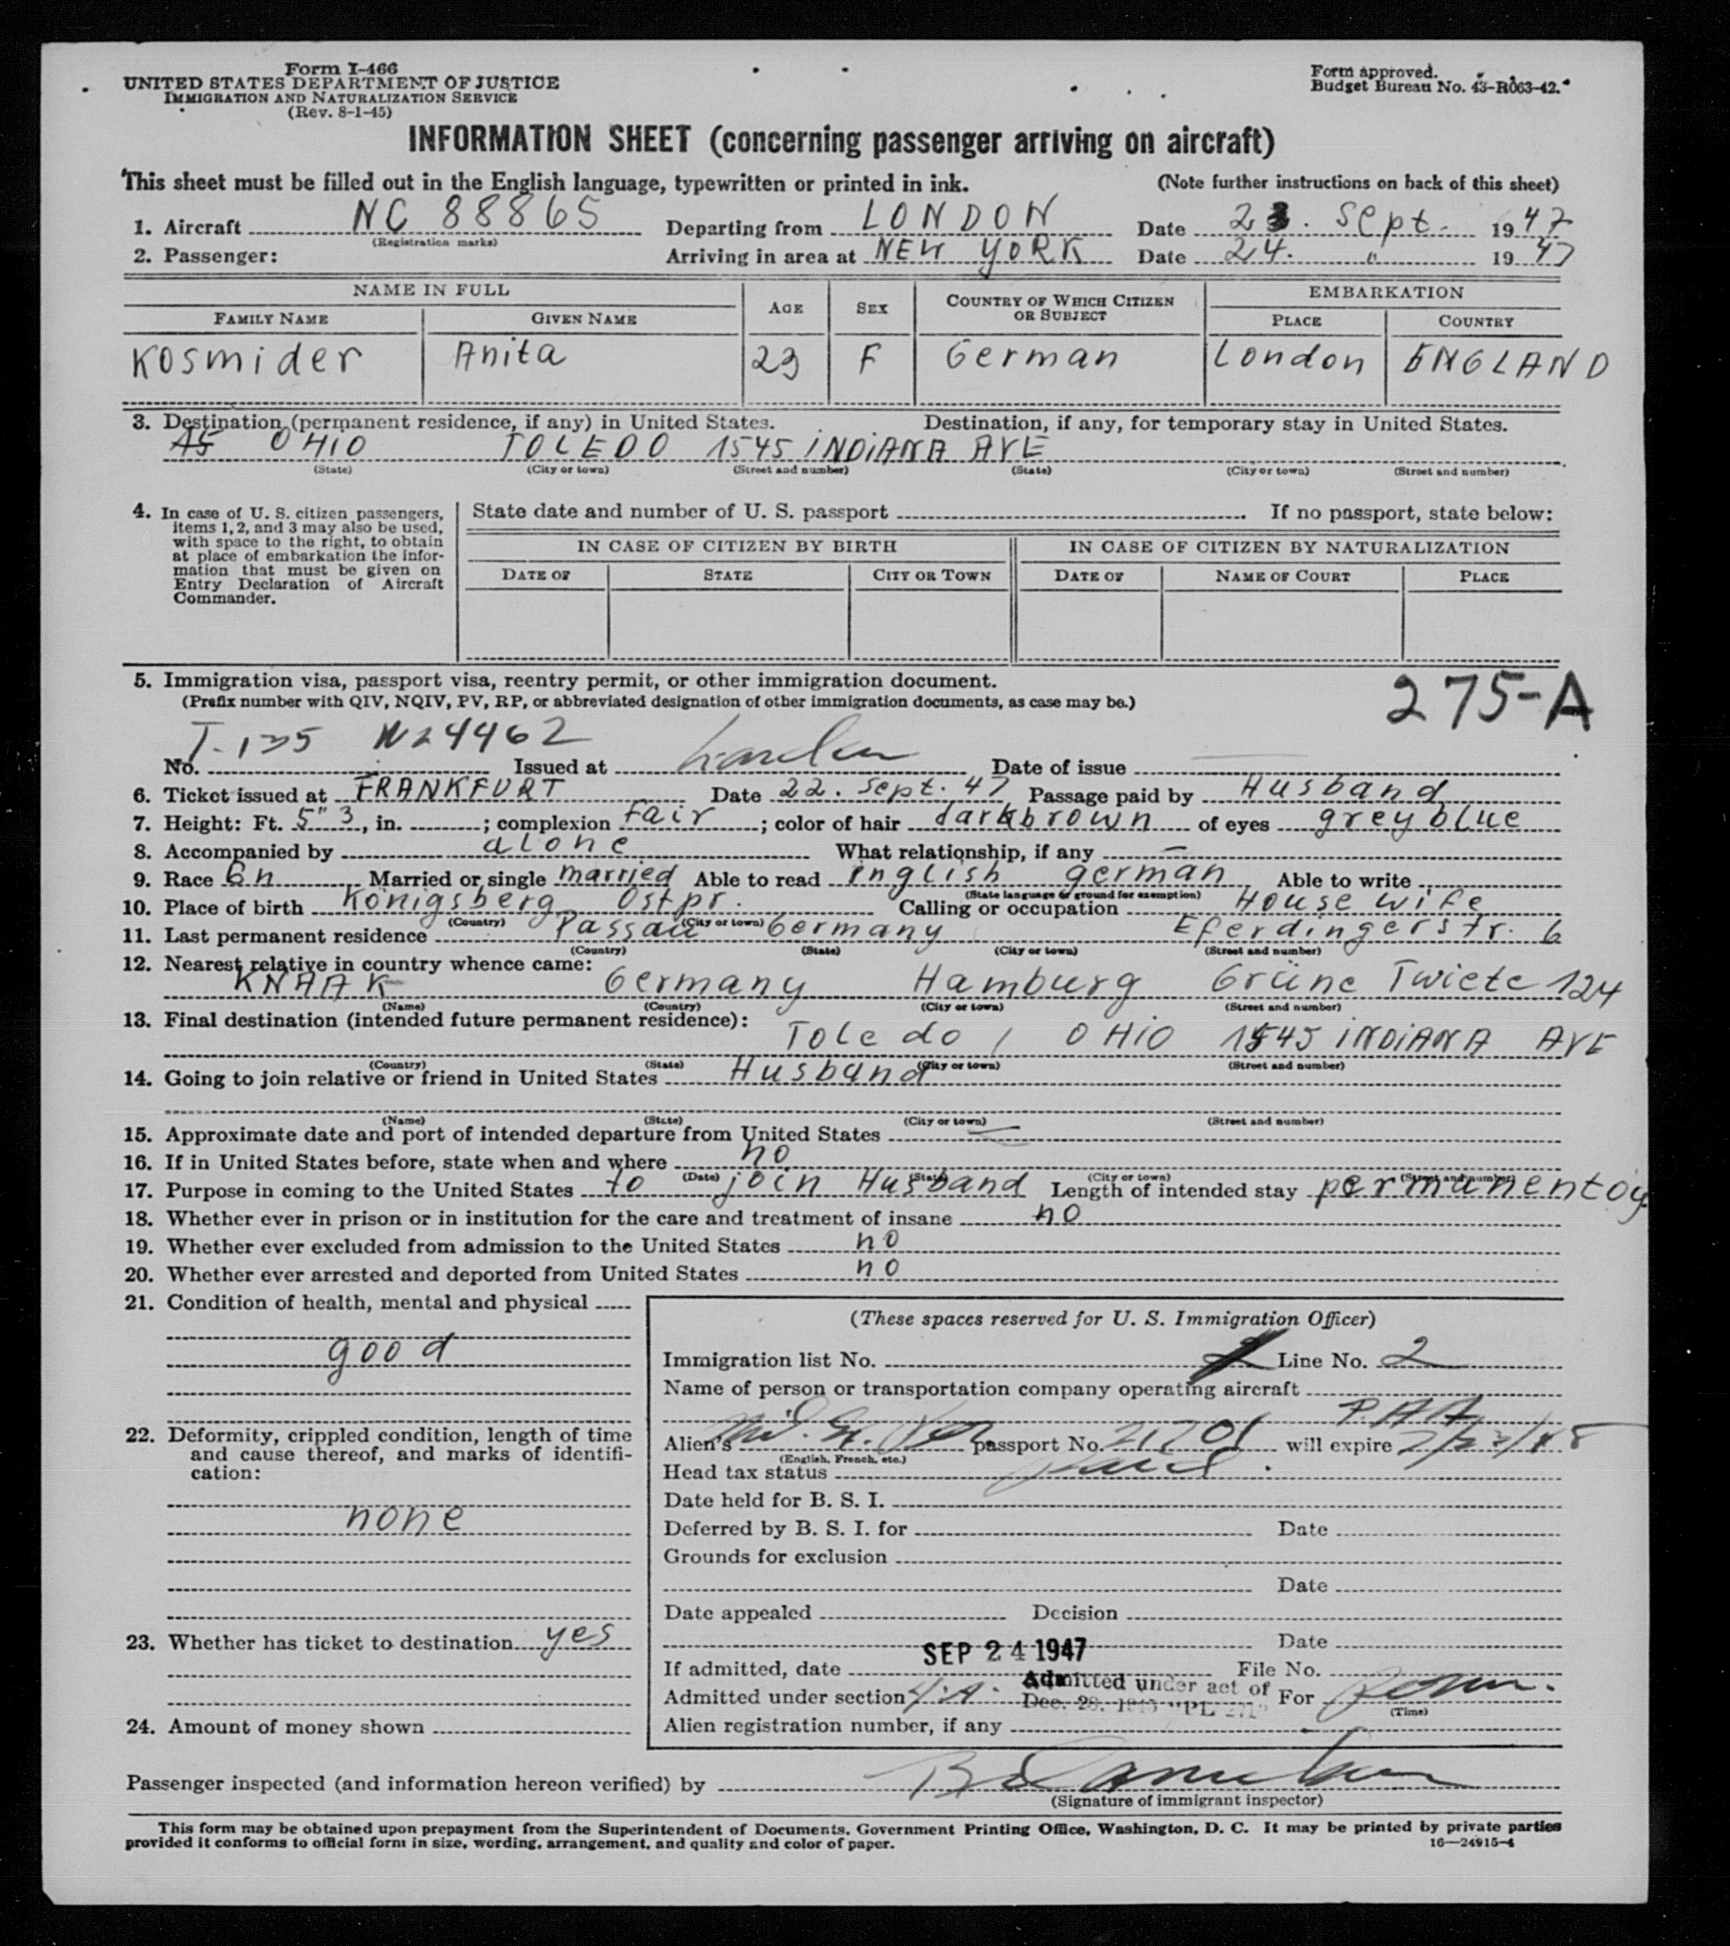 Form I-466
UNITED STATES DEPARTMENT OF JUSTICE
IMMIGRATION AND NATURALIZATION SERVICE
(Rev. 8-1-45)
Form approved.
Budget Bureau No. 43-R063-42.
INFORMATION SHEET (concerning passenger arriving on aircraft)
This sheet must be filled out in the English language, typewritten or printed in ink. (Note further instructions on back of this sheet)
1. Aircraft NC 88865 Departing from LONDON Date 23. Sept. 1947
(Registration marks)
2. Passenger: Arriving in area at NEW YORK Date 24. " 1947
NAME IN FULL AGE SEX COUNTRY OF WHICH CITIZEN OR SUBJECT EMBARKATION
FAMILY NAME GIVEN NAME PLACE COUNTRY
Kosmider Anita 23 F German London ENGLAND
3. Destination (permanent residence, if any) in United States. Destination, if any, for temporary stay in United States.
OHIO TOLEDO 1545 INDIANA AVE
(State) (City or town) (Street and number) (State) (City or town) (Street and number)
4. In case of U. S. citizen passengers, items 1, 2, and 3 may also be used, with space to the right, to obtain at place of embarkation the information that must be given on Entry Declaration of Aircraft Commander.
State date and number of U. S. passport If no passport, state below:
IN CASE OF CITIZEN BY BIRTH IN CASE OF CITIZEN BY NATURALIZATION
DATE OF STATE CITY OR TOWN DATE OF NAME OF COURT PLACE
5. Immigration visa, passport visa, reentry permit, or other immigration document.
(Prefix number with QIV, NQIV, PV, RP, or abbreviated designation of other immigration documents, as case may be.)
275-A
No. Issued at London Date of issue
6. Ticket issued at FRANKFURT Date 22. Sept. 47 Passage paid by Husband
7. Height: Ft. 5" 3, in. ; complexion Fair ; color of hair darkbrown of eyes greyblue
8. Accompanied by alone What relationship, if any —
9. Race Married or single married Able to read english german Able to write
(State language or ground for exemption)
10. Place of birth Königsberg Ostpr. Calling or occupation House wife
(Country) (City or town)
11. Last permanent residence Passau Germany Eferdingerstr. 6
(Country) (State) (City or town) (Street and number)
12. Nearest relative in country whence came:
KNAAK Germany Hamburg Grüne Twiete 124
(Name) (Country) (City or town) (Street and number)
13. Final destination (intended future permanent residence):
Toledo, OHIO 1545 INDIANA AVE
(Country) (State) (City or town) (Street and number)
14. Going to join relative or friend in United States Husband
(Name) (State) (City or town) (Street and number)
15. Approximate date and port of intended departure from United States —
16. If in United States before, state when and where no
(Date) (State) (City or town) (Street and number)
17. Purpose in coming to the United States to join Husband Length of intended stay
18. Whether ever in prison or in institution for the care and treatment of insane no
19. Whether ever excluded from admission to the United States no
20. Whether ever arrested and deported from United States no
21. Condition of health, mental and physical
good
22. Deformity, crippled condition, length of time and cause thereof, and marks of identification:
none
23. Whether has ticket to destination yes
24. Amount of money shown
(These spaces reserved for U. S. Immigration Officer)
Immigration list No. Line No. 2
Name of person or transportation company operating aircraft
P.A.A
Alien's passport No. will expire
(English, French, etc.)
Head tax status
Date held for B. S. I.
Deferred by B. S. I. for Date
Grounds for exclusion
Date
Date appealed Decision
Date
If admitted, date SEP 24 1947 File No.
Admitted under section Admitted under act of Dec. 28. For
(Time)
Alien registration number, if any
Passenger inspected (and information hereon verified) by
(Signature of immigrant inspector)
This form may be obtained upon prepayment from the Superintendent of Documents, Government Printing Office, Washington, D. C. It may be printed by private parties
provided it conforms to official form in size, wording, arrangement, and quality and color of paper. 16—24915-4